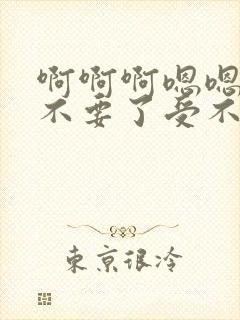 啊啊啊嗯嗯
不要了受不
東京很冷